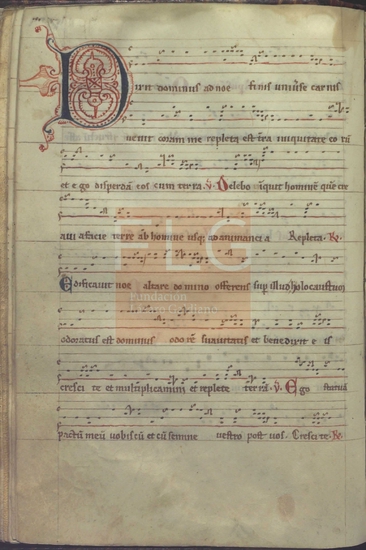 Dixit dominus ad noe finis universe carnis
venit coram me repleta est terra iniquitate eorum
et ego disperdam eos cum terra. V. Delebo inquit hominem quem cre
avi a facie terre ab homine usque ad animantia Repleta. R.
Edificavit noe altare domino offerens super illud holocaustum
odoratus est dominus odorem suavitatis et benedixit eis
crescite et multiplicamini et replete terram. V. Ego statuam
pactum meum vobiscum et cum semine vestro post vos. Crescite. R.
FLG
Fundación
Lázaro Galdiano